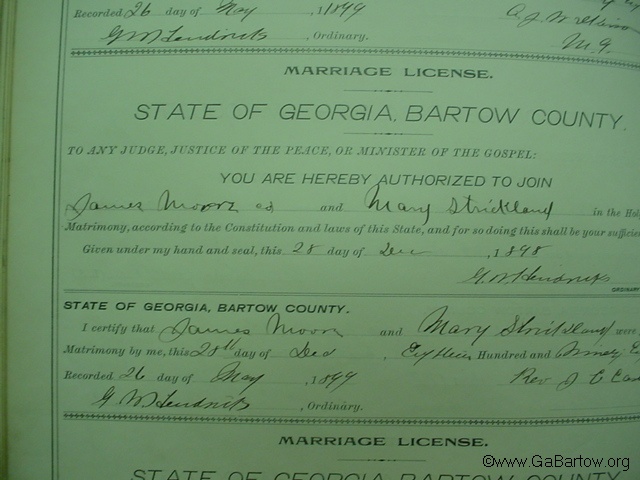 Recorded 26 day of May , 1899
G W Hendricks , Ordinary.
M. G.
MARRIAGE LICENSE.
STATE OF GEORGIA, BARTOW COUNTY.
TO ANY JUDGE, JUSTICE OF THE PEACE, OR MINISTER OF THE GOSPEL:
YOU ARE HEREBY AUTHORIZED TO JOIN
James Moore and Mary Strickland in the Hol
Matrimony, according to the Constitution and laws of this State, and for so doing this shall be your sufficie
Given under my hand and seal, this 28 day of Dec , 1898
G W Hendricks
ORDINARY
STATE OF GEORGIA, BARTOW COUNTY.
I certify that James Moore and Mary Strickland were
Matrimony by me, this 28th day of Dec , Eighteen Hundred and Ninety E
Recorded 26 day of May , 1899 Rev J C
G W Hendricks , Ordinary.
MARRIAGE LICENSE.
STATE OF GEORGIA, BARTOW COUNTY
©www.GaBartow.org